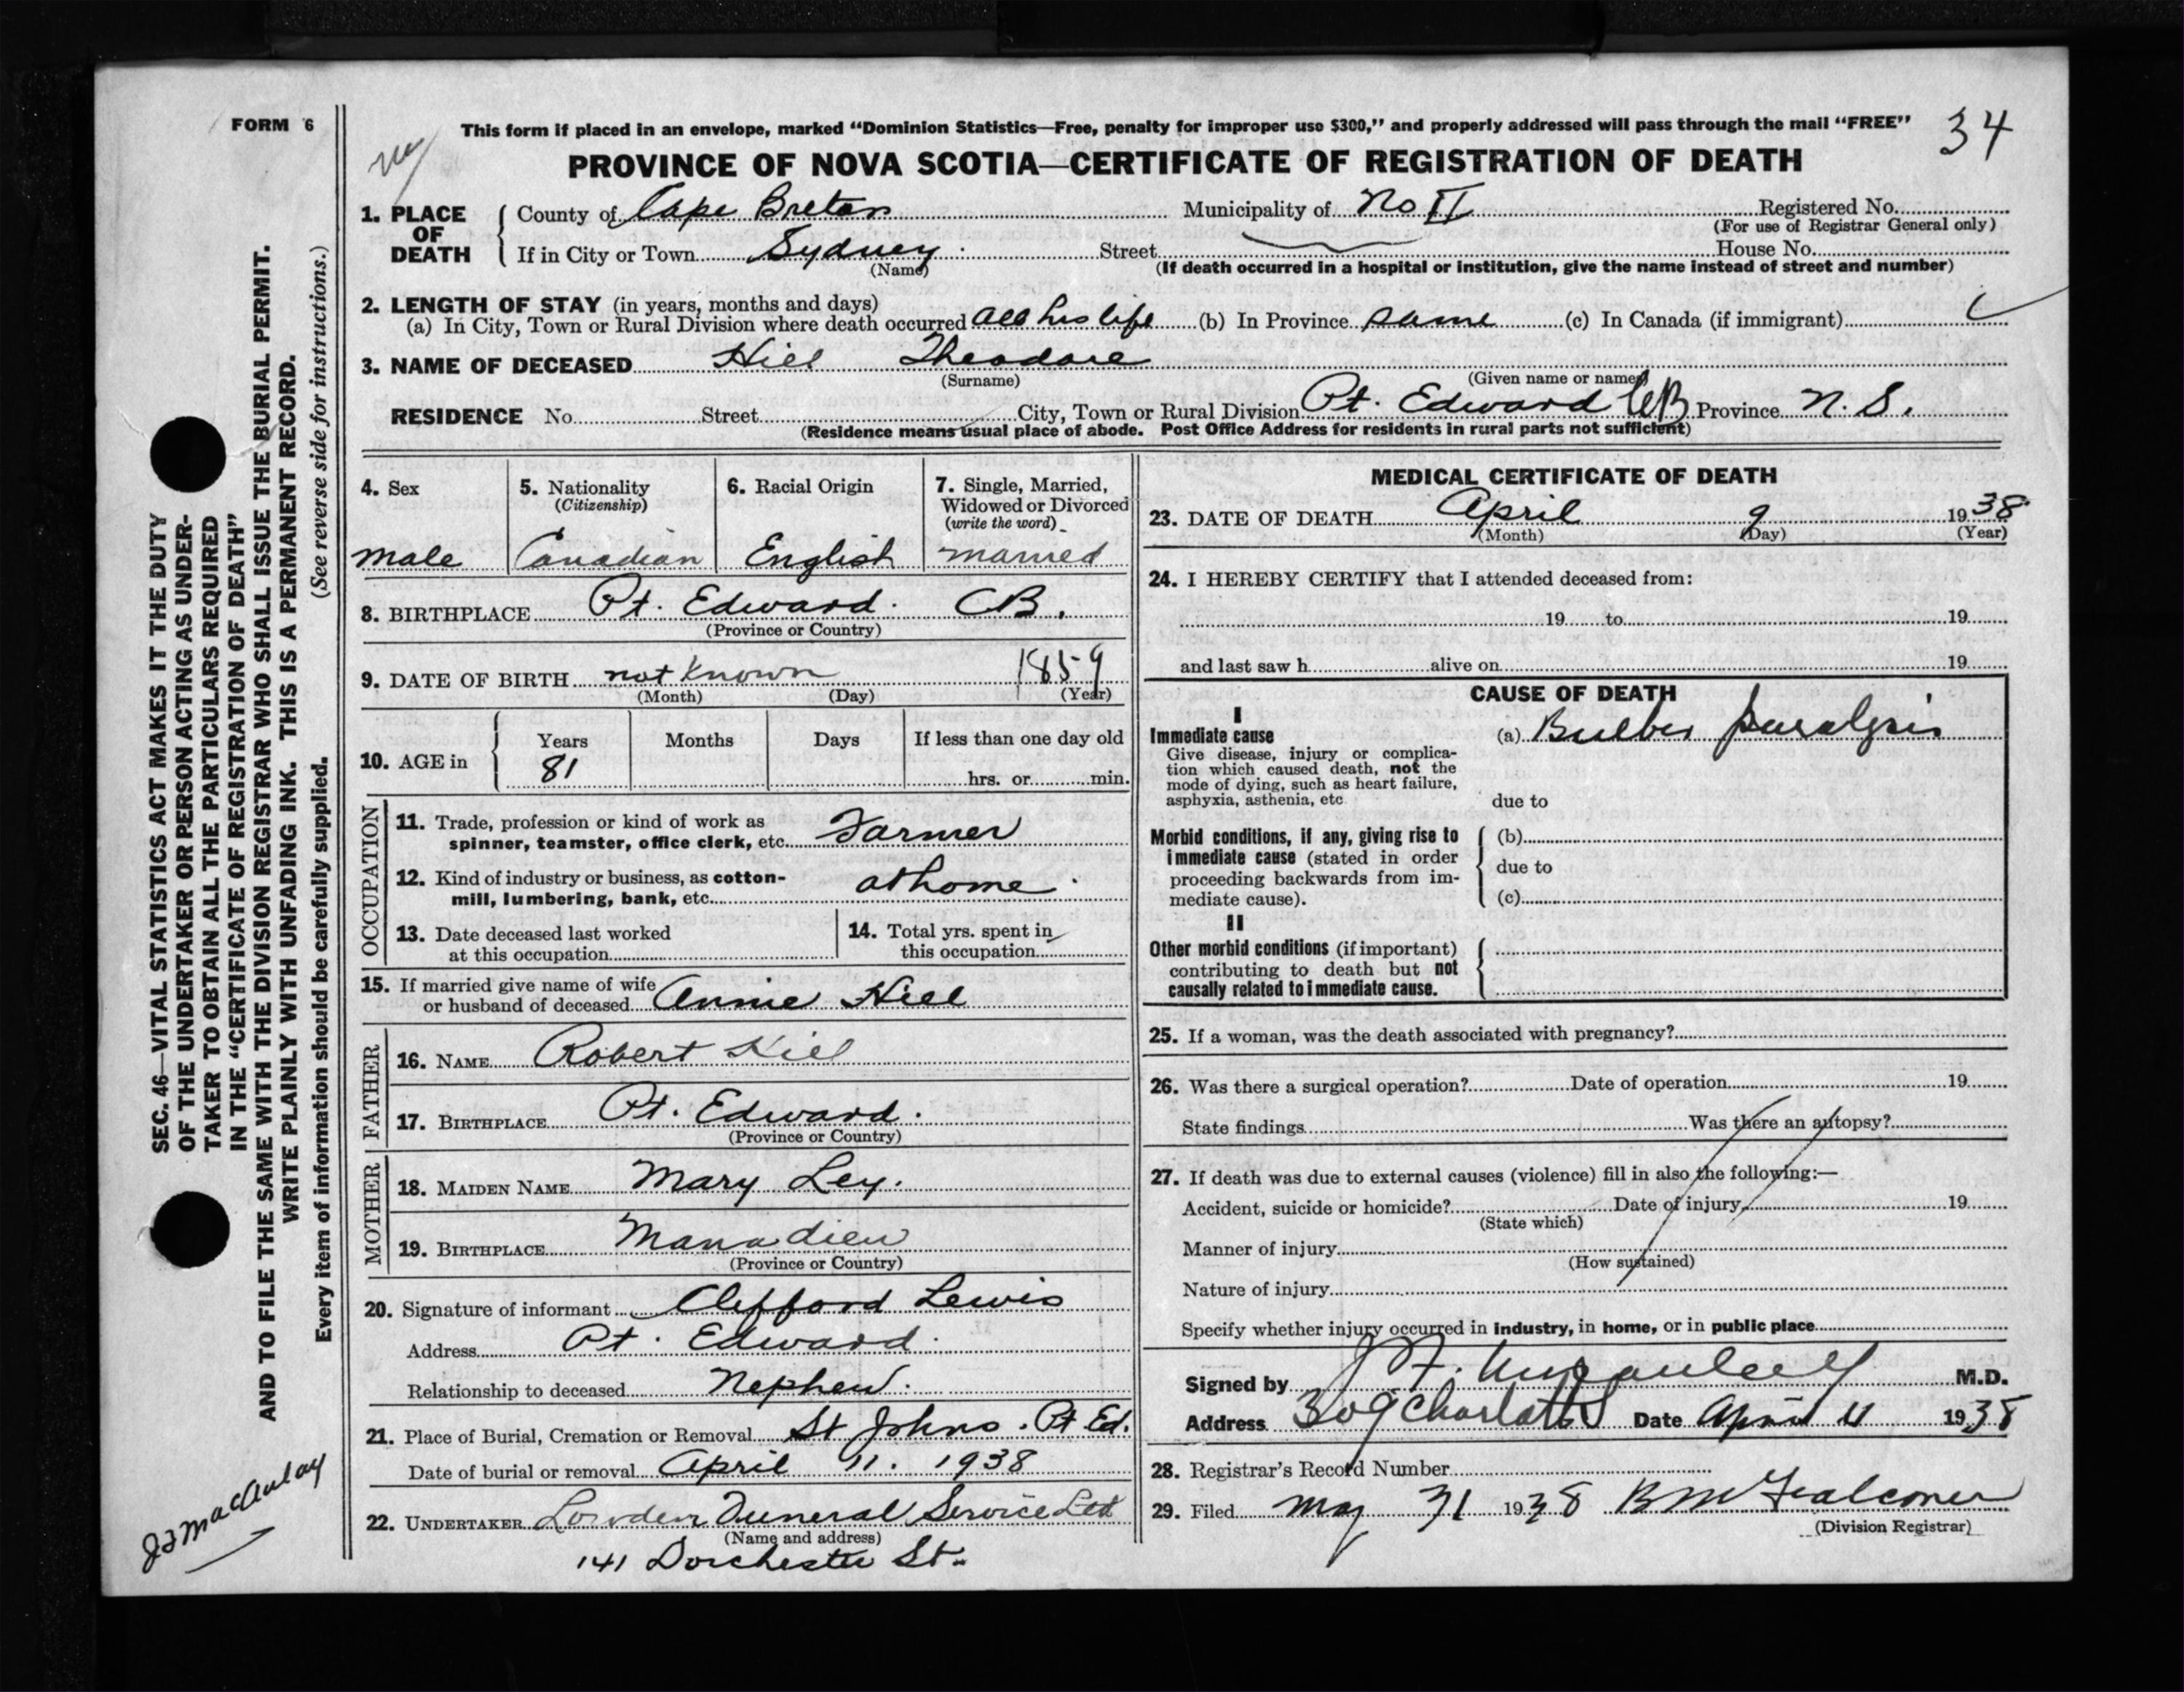 FORM 6
This form if placed in an envelope, marked “Dominion Statistics—Free, penalty for improper use $300,” and properly addressed will pass through the mail “FREE”
34
PROVINCE OF NOVA SCOTIA—CERTIFICATE OF REGISTRATION OF DEATH
1. PLACE OF DEATH
County of Cape Breton Municipality of No II Registered No.
(For use of Registrar General only)
If in City or Town Sydney Street House No.
(Name) (If death occurred in a hospital or institution, give the name instead of street and number)
2. LENGTH OF STAY (in years, months and days)
(a) In City, Town or Rural Division where death occurred all his life (b) In Province same (c) In Canada (if immigrant)
3. NAME OF DECEASED Hill Theodore
(Surname) (Given name or names)
RESIDENCE No. Street City, Town or Rural Division Pt. Edward CB Province N. S.
(Residence means usual place of abode. Post Office Address for residents in rural parts not sufficient)
4. Sex
male
5. Nationality
(Citizenship)
Canadian
6. Racial Origin
English
7. Single, Married,
Widowed or Divorced
(write the word)
married
8. BIRTHPLACE Pt. Edward. CB.
(Province or Country)
9. DATE OF BIRTH not known 1859
(Month) (Day) (Year)
10. AGE in
Years Months Days If less than one day old
81 hrs. or min.
OCCUPATION
11. Trade, profession or kind of work as
spinner, teamster, office clerk, etc. Farmer
12. Kind of industry or business, as cotton-
mill, lumbering, bank, etc. at home.
13. Date deceased last worked
at this occupation
14. Total yrs. spent in
this occupation
15. If married give name of wife
or husband of deceased Annie Hill
FATHER
16. NAME Robert Hill
17. BIRTHPLACE Pt. Edward.
(Province or Country)
MOTHER
18. MAIDEN NAME Mary Ley.
19. BIRTHPLACE Manadieu
(Province or Country)
20. Signature of informant Clifford Lewis
Address Pt. Edward.
Relationship to deceased Nephew.
21. Place of Burial, Cremation or Removal St Johns. Pt Ed.
Date of burial or removal April 11. 1938
22. UNDERTAKER Lowden Funeral Service Ltd
(Name and address)
141 Dorchester St.
MEDICAL CERTIFICATE OF DEATH
23. DATE OF DEATH April 9 1938
(Month) (Day) (Year)
24. I HEREBY CERTIFY that I attended deceased from:
19 to 19
and last saw h alive on 19
CAUSE OF DEATH
I
Immediate cause
Give disease, injury or complica-
tion which caused death, not the
mode of dying, such as heart failure,
asphyxia, asthenia, etc
(a) Bulber paralysis
due to
Morbid conditions, if any, giving rise to
immediate cause (stated in order
proceeding backwards from im-
mediate cause).
(b)
due to
(c)
II
Other morbid conditions (if important)
contributing to death but not
causally related to immediate cause.
25. If a woman, was the death associated with pregnancy?
26. Was there a surgical operation? Date of operation 19
State findings Was there an autopsy?
27. If death was due to external causes (violence) fill in also the following:—
Accident, suicide or homicide? Date of injury 19
(State which)
Manner of injury
(How sustained)
Nature of injury
Specify whether injury occurred in industry, in home, or in public place
Signed by M.D.
Address 309 Charlotte Date April 11 1938
28. Registrar's Record Number
29. Filed May 31 1938 B M Falconer
(Division Registrar)
SEC. 46—VITAL STATISTICS ACT MAKES IT THE DUTY
OF THE UNDERTAKER OR PERSON ACTING AS UNDER-
TAKER TO OBTAIN ALL THE PARTICULARS REQUIRED
IN THE “CERTIFICATE OF REGISTRATION OF DEATH”
AND TO FILE THE SAME WITH THE DIVISION REGISTRAR WHO SHALL ISSUE THE BURIAL PERMIT.
WRITE PLAINLY WITH UNFADING INK. THIS IS A PERMANENT RECORD.
Every item of information should be carefully supplied. (See reverse side for instructions.)
JF MacAulay